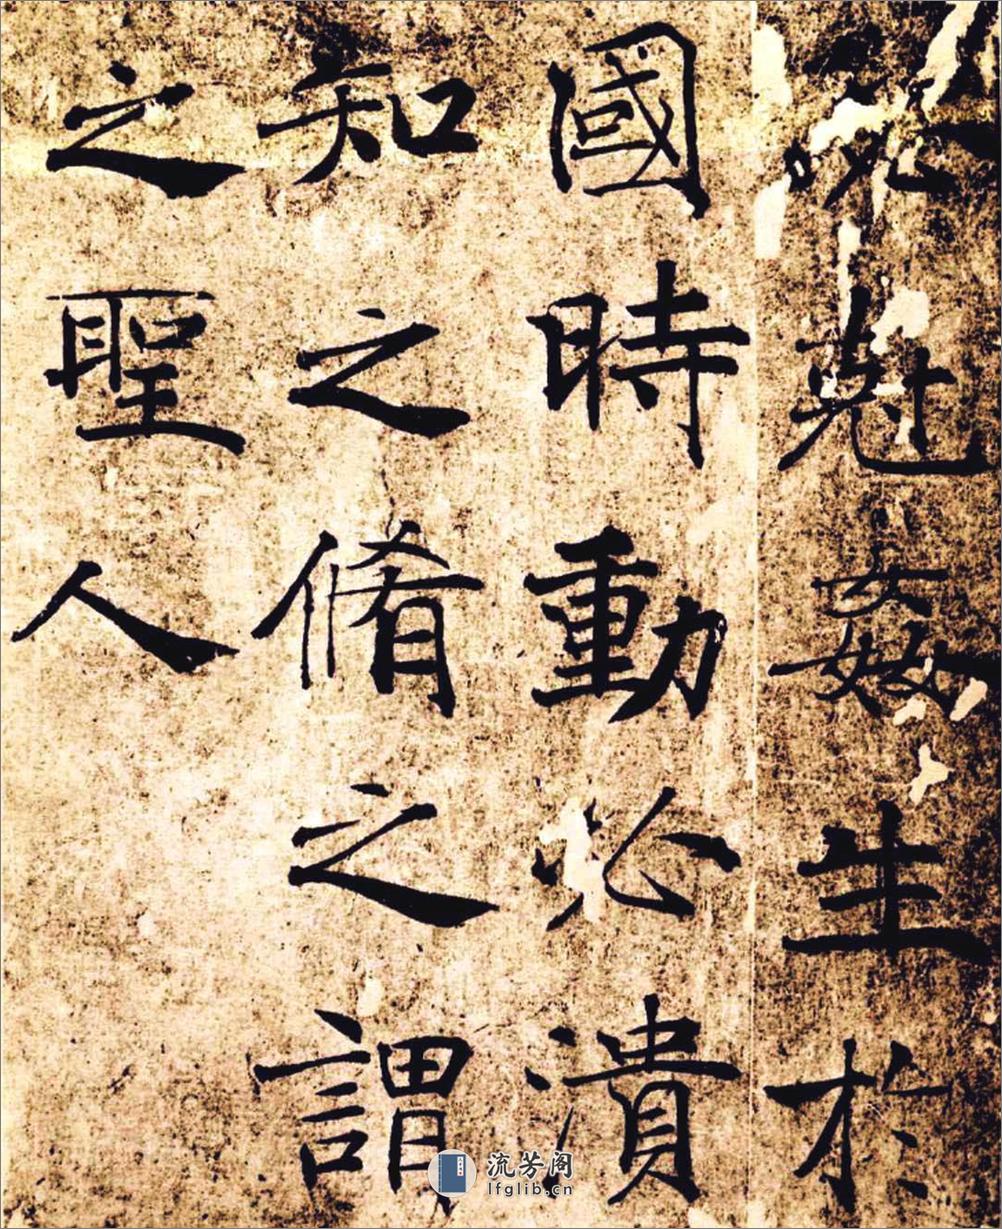 必尅姦生於
國時動必潰
知之脩之謂
之聖人
流芳阁
lfglib.cn